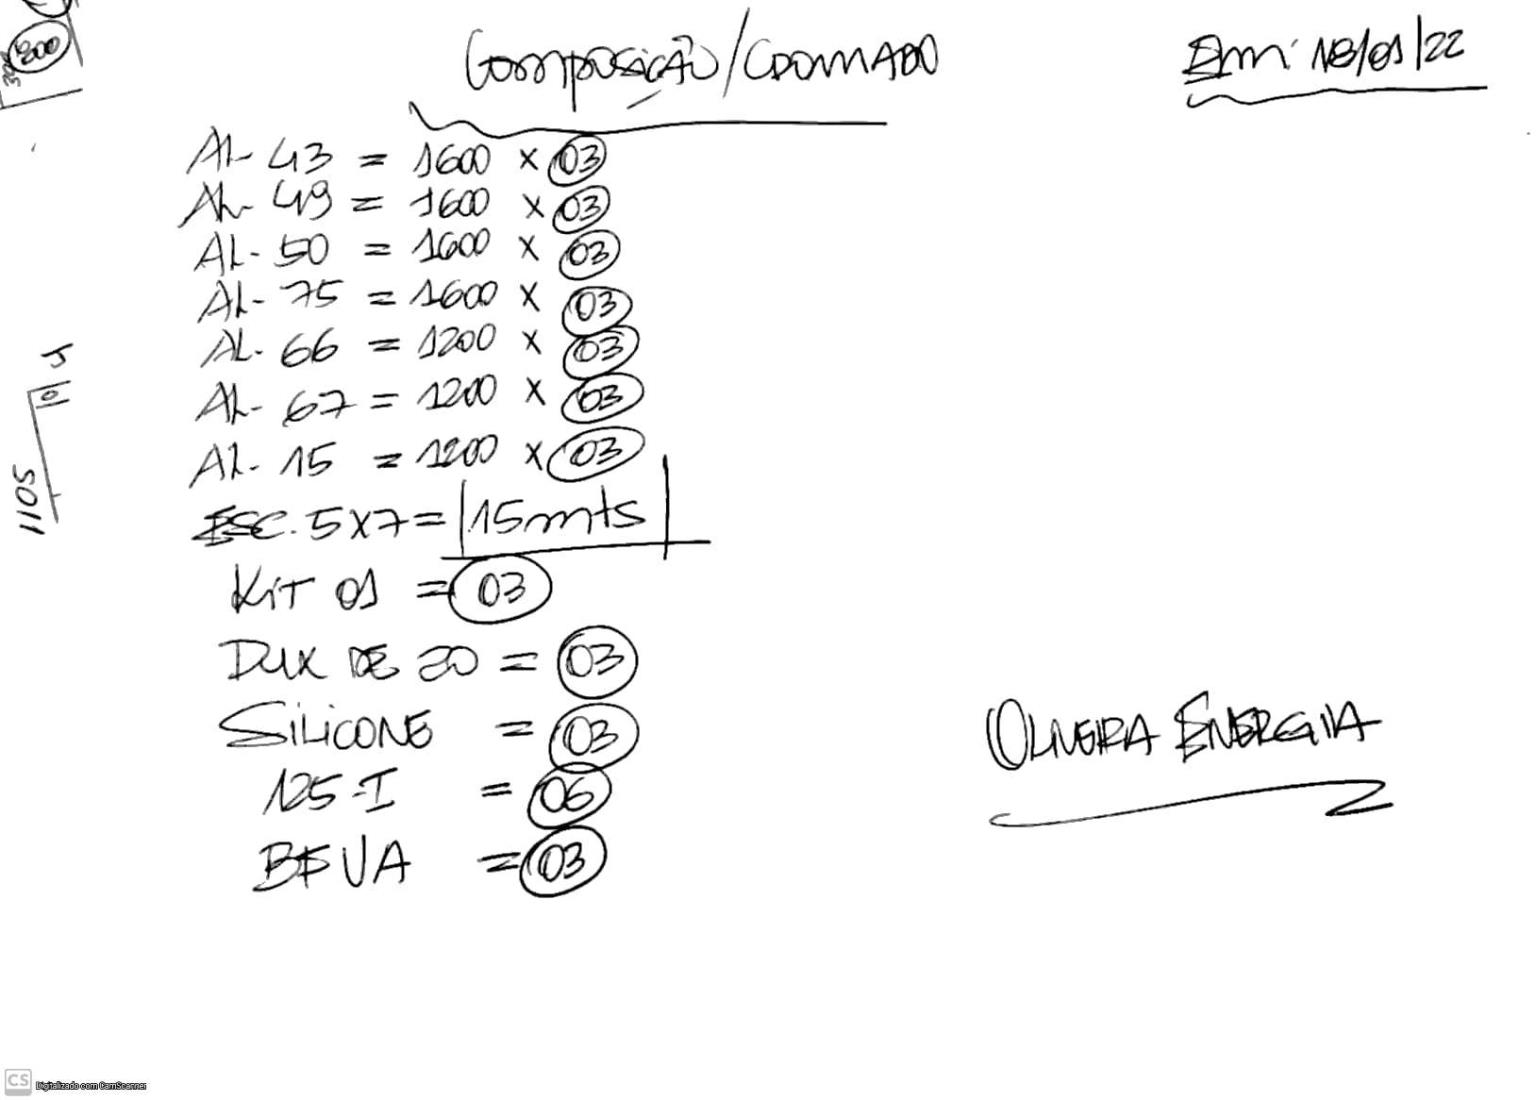 Composição/Cromado
Em: 18/01/22
200
AL- 43 = 1600 x 03
AL- 49 = 1600 x 03
AL- 50 = 1600 x 03
AL- 75 = 1600 x 03
AL- 66 = 1200 x 03
AL- 67 = 1200 x 03
AL- 15 = 1200 x 03
ESC. 5x7 = 15mts
KIT 01 = 03
DUX DE 20 = 03
SILICONE = 03
125-I = 06
BFVA = 03
OLIVEIRA ENERGIA
1105
CS Digitalizado com CamScanner